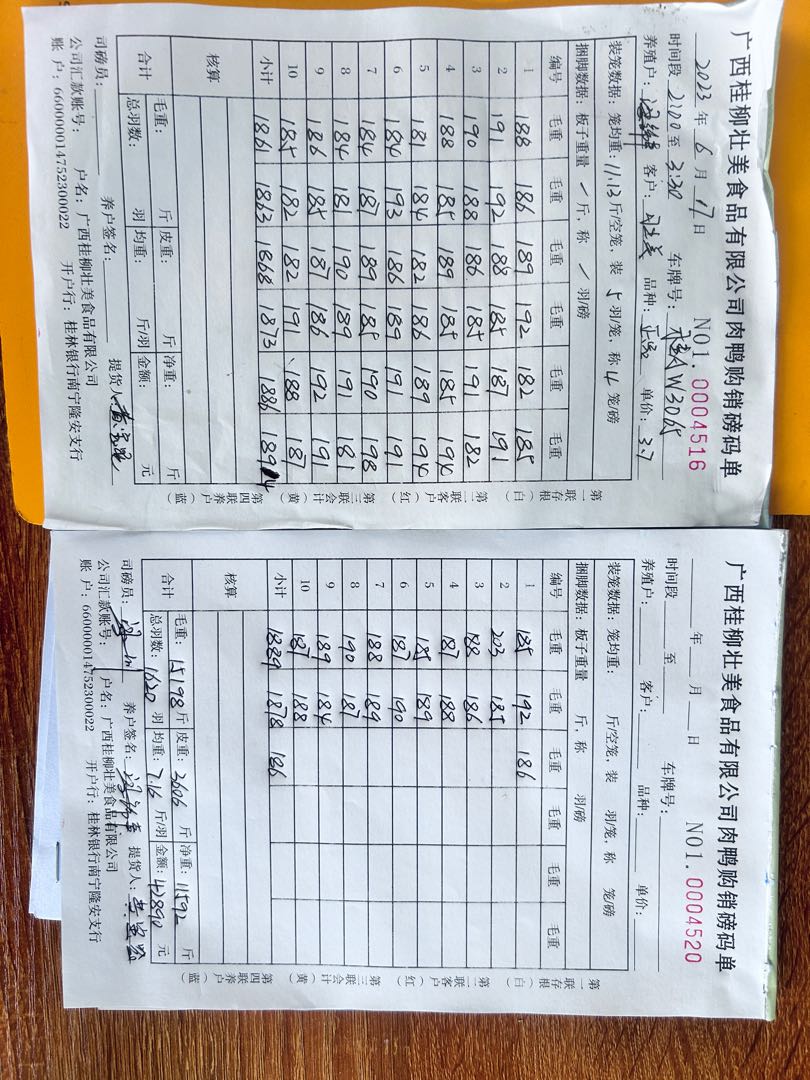 广西桂柳壮美食品有限公司肉鸭购销磅码单
2023 年 6 月 17 日 NO1. 0004516
时间段 2100 至 3:30 车牌号: AW3065
养殖户: 客户: 品种: 单价: 3.7
装笼数据: 笼均重: 11.13 斤/空笼, 装 5 羽/笼, 称 4 笼/磅
捆脚数据: 板子重量 / 斤, 称 / 羽/磅
编号 毛重 毛重 毛重 毛重 毛重 毛重
1 188 186 189 192 182 185
2 191 192 188 185 187 191
3 190 188 186 185 191 182
4 188 185 189 185 185 194
5 181 184 182 186 189 194
6 184 193 186 189 191 191
7 184 187 189 185 190 198
8 184 181 190 189 191 181
9 186 185 187 186 192 191
10 185 182 182 191 188 187
小计 1861 1863 1868 1873 1886 1894
核算
合计 毛重: 斤 皮重: 斤 净重: 斤
总羽数: 羽 均重: 斤/羽 金额: 元
司磅员: 养户签名: 提货人:
公司汇款账号: 户名: 广西桂柳壮美食品有限公司
账 户: 660000014752300022 开户行: 桂林银行南宁隆安支行
第一联存根(白) 第二联客户(红) 第三联会计(黄) 第四联养户(蓝)
广西桂柳壮美食品有限公司肉鸭购销磅码单
年 月 日 NO1. 0004520
时间段 至 车牌号:
养殖户: 客户: 品种: 单价:
装笼数据: 笼均重: 斤/空笼, 装 羽/笼, 称 笼/磅
捆脚数据: 板子重量 斤, 称 羽/磅
编号 毛重 毛重 毛重 毛重 毛重 毛重
1 185 192 186
2 203 185
3 188 186
4 187 188
5 185 189
6 187 190
7 188 189
8 190 187
9 189 184
10 187 188
小计 1889 1878 186
核算
合计 毛重: 15198 斤 皮重: 3606 斤 净重: 11592 斤
总羽数: 1620 羽 均重: 7.16 斤/羽 金额: 42890 元
司磅员: 养户签名: 提货人:
公司汇款账号: 户名: 广西桂柳壮美食品有限公司
账 户: 660000014752300022 开户行: 桂林银行南宁隆安支行
第一联存根(白) 第二联客户(红) 第三联会计(黄) 第四联养户(蓝)